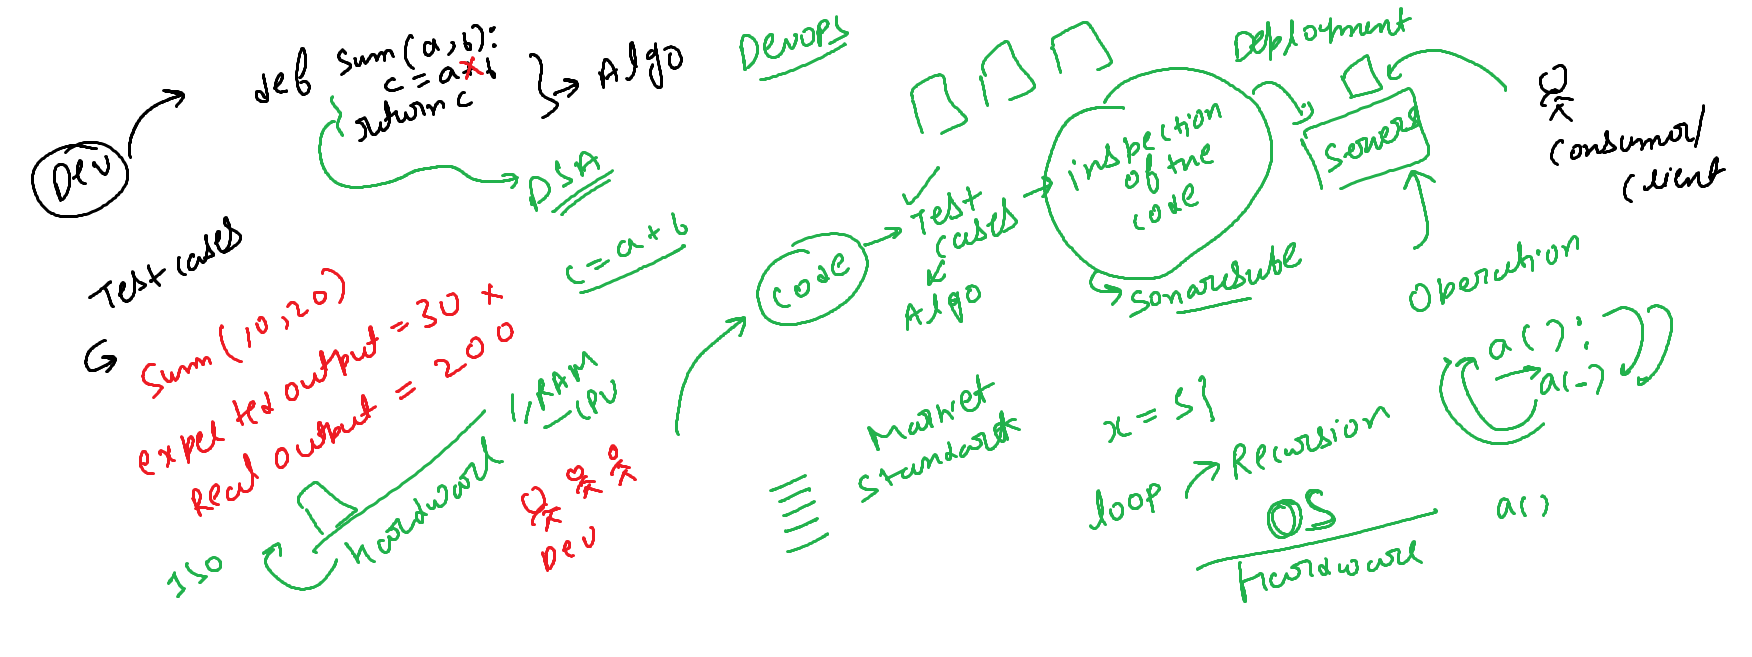 Dev
def sum(a,b):
c=a*b
return c
Algo
DSA
c=a+b
Test cases
Sum(10,20)
expected output = 30 x
Real output = 200
ISO
hardward
RAM
CPU
Dev
Devops
code
Test
cases
Algo
inspection
of the
code
Sonarqube
Deployment
Servers
Consumor/
Client
Operation
Market
standard
x = 5
loop → Recursion
a():
a()
a()
OS
Hardware